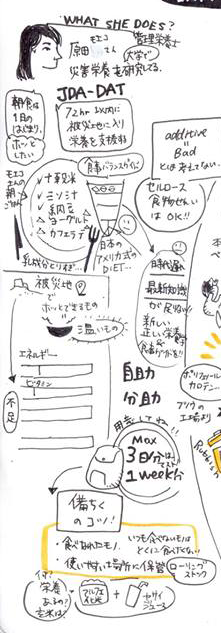 WHAT SHE DOES?
モエコ
原田 さん
管理栄養士
大学で
災害栄養を研究してる。
朝食は
1日の
はじまり。
ホッと
したい
JDA-DAT
72hr以内に
被災地に入り
栄養を支援する
additive
=
Bad
とは考えてない。
食事バランスガイド
セルロース
食物せんい
は OK!!
モエコ
さんの
朝ごはん
十穀米
ミソ汁
納豆
ヨーグルト
カフェラテ
乳成分とりすぎ…
日本の
アメリカ式の
DIET…
最新知識
が足りない
新しい
正しい栄養学
被災地
で
ホッとできるもの
温いもの
エネルギー
ビタミン
不足
自助
分助
ポリフェノール
カロテン…
用意してね!!
Max
3日分は
1 weekが
備ちく
のコツ!
・食べなれたモノ。
いつも食べないモノは
とくに食べたくない!
・使いやすい場所に保管
ローリング
ストック
栄養
ある?
玄米は?
アルファ
化米
+
ヤサイ
ジュース